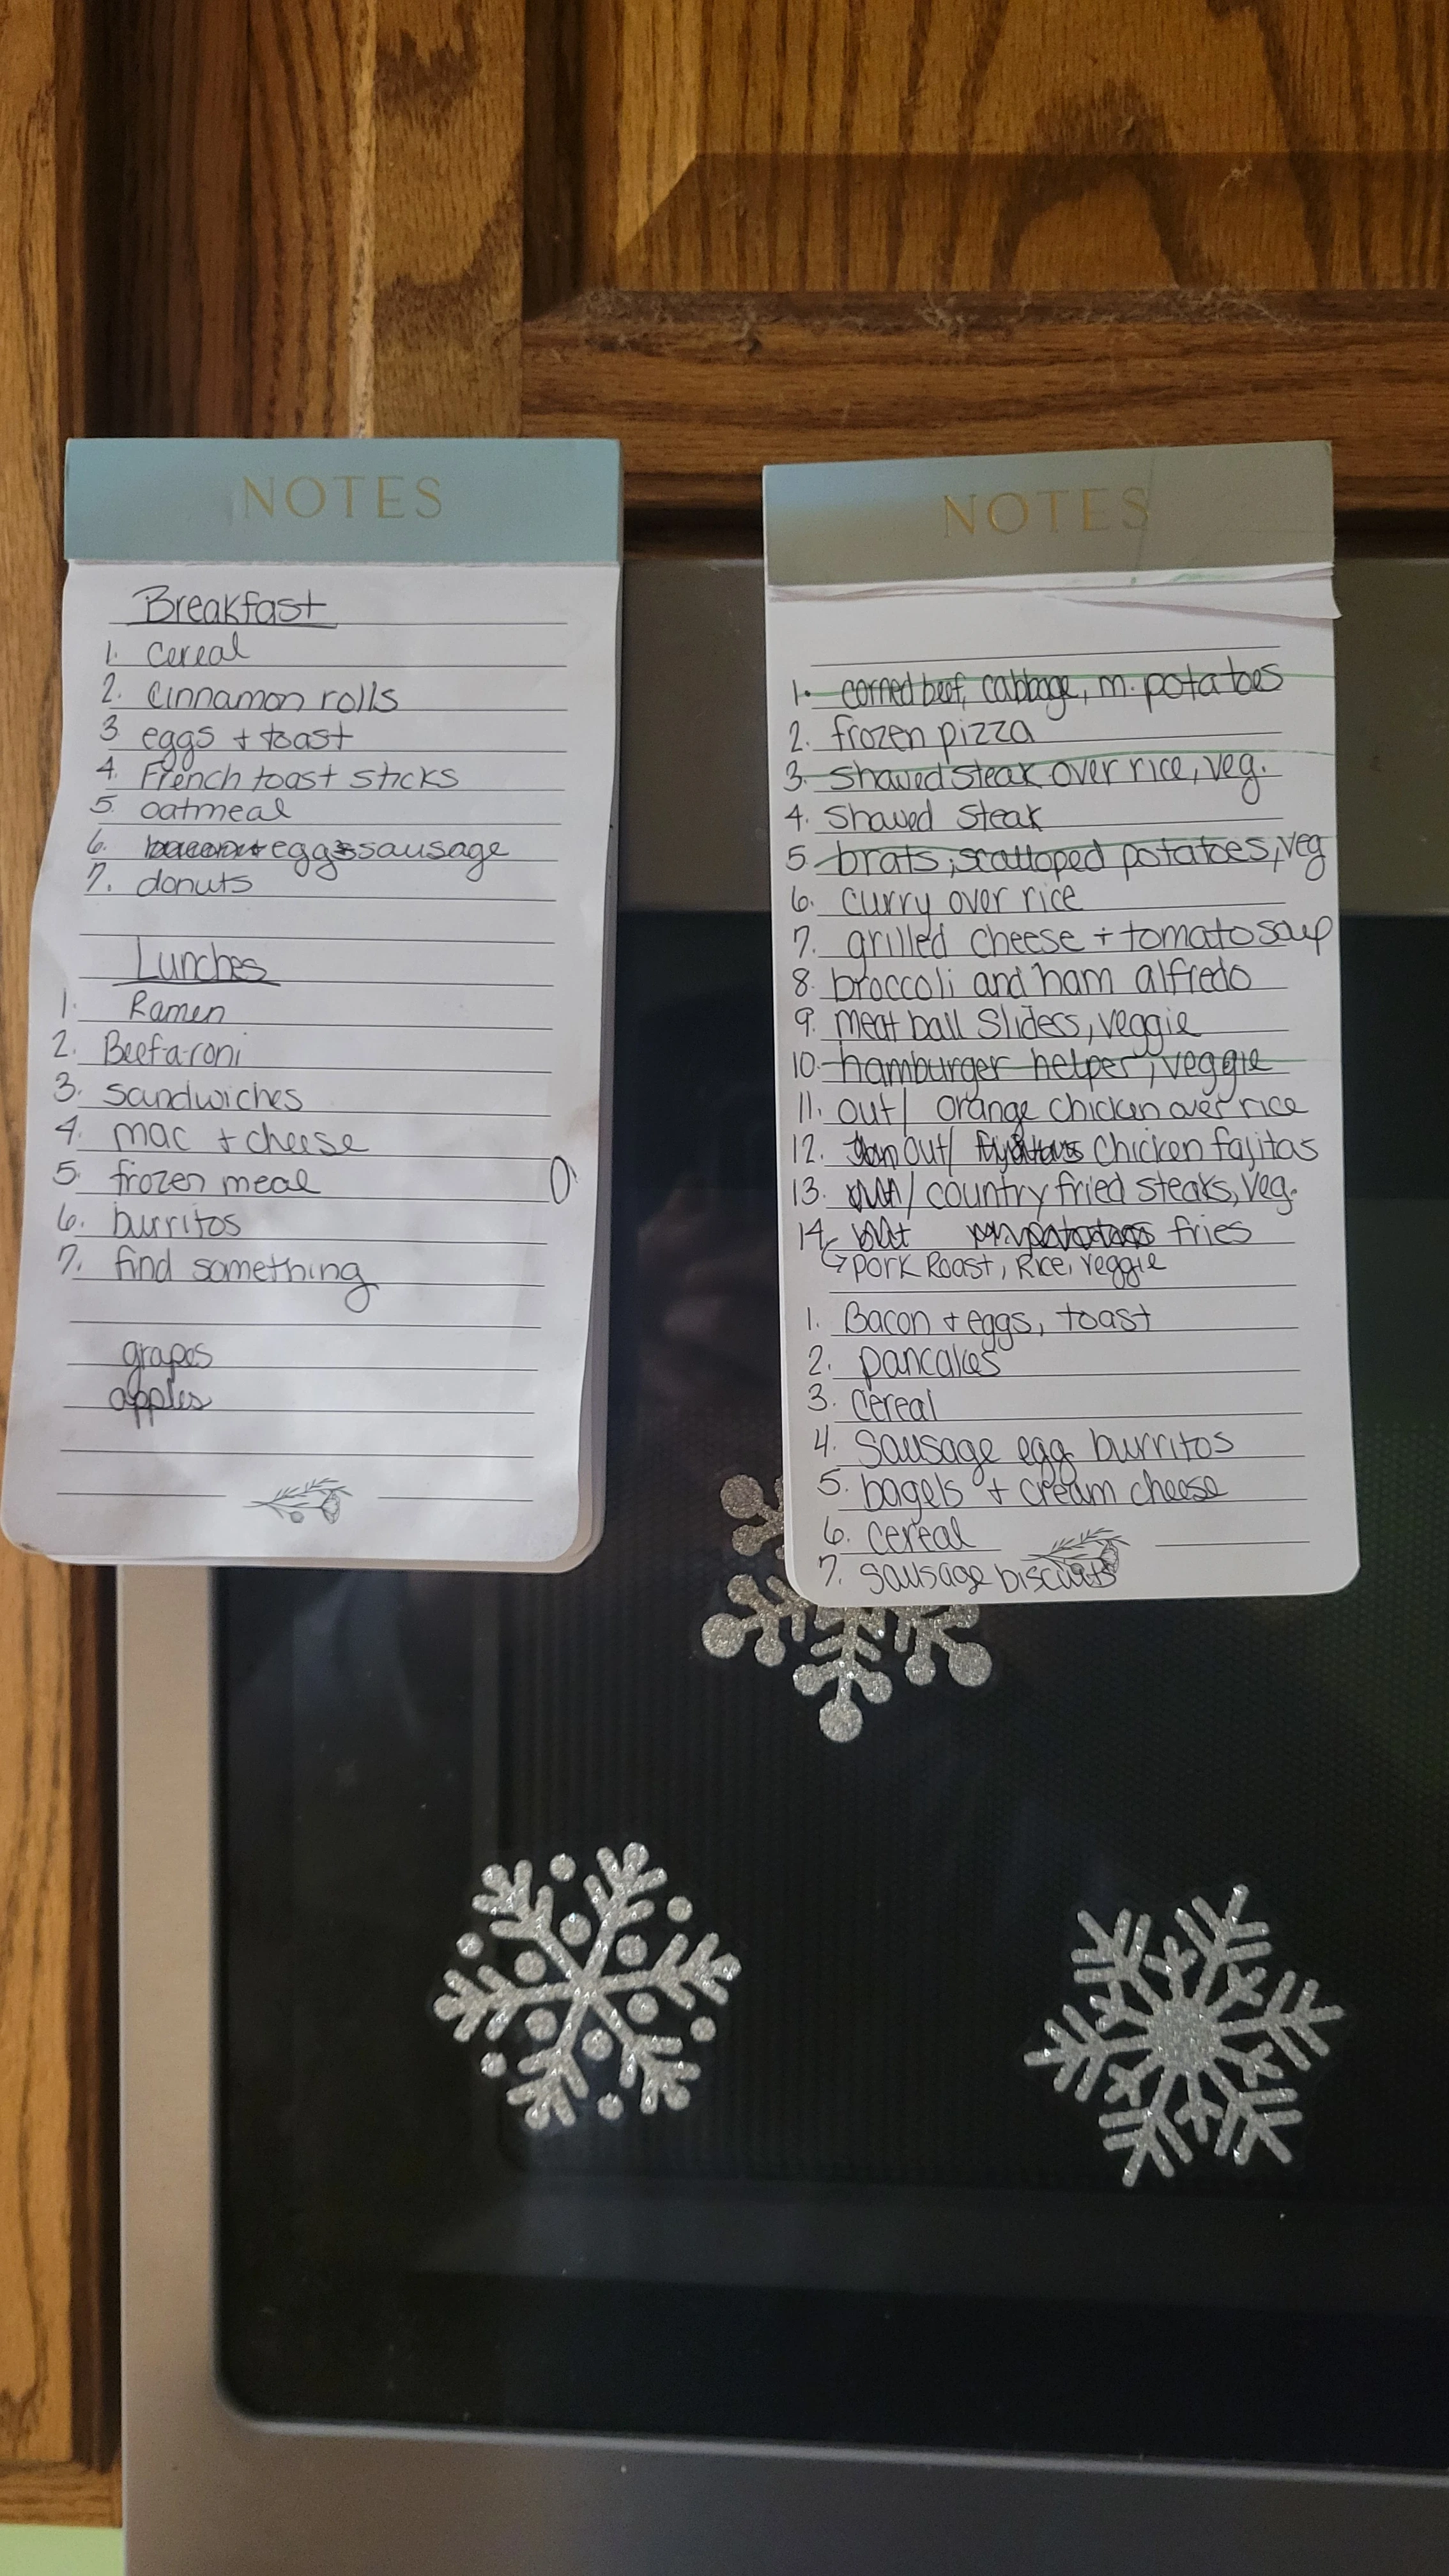 NOTES
Breakfast
1. Cereal
2. Cinnamon rolls
3. eggs + toast
4. French toast sticks
5. oatmeal
6. eggs sausage
7. donuts
Lunches
1. Ramen
2. Beefaroni
3. sandwiches
4. mac + cheese
5. frozen meal
6. burritos
7. find something
grapes
apples
NOTES
1. corned beef, cabbage, m. potatoes
2. frozen pizza
3. Shaved steak over rice, veg.
4. Shaved Steak
5. brats, scalloped potatoes, veg
6. curry over rice
7. grilled cheese + tomato soup
8. broccoli and ham alfredo
9. meat ball Sliders, veggie
10. hamburger helper, veggie
11. out/ orange chicken over rice
12. out/ Chicken fajitas
13. / country fried steaks, veg.
14. fries
Pork Roast, Rice, veggie
1. Bacon + eggs, toast
2. pancakes
3. Cereal
4. Sausage egg burritos
5. bagels + cream cheese
6. Cereal
7. Sausage biscuits